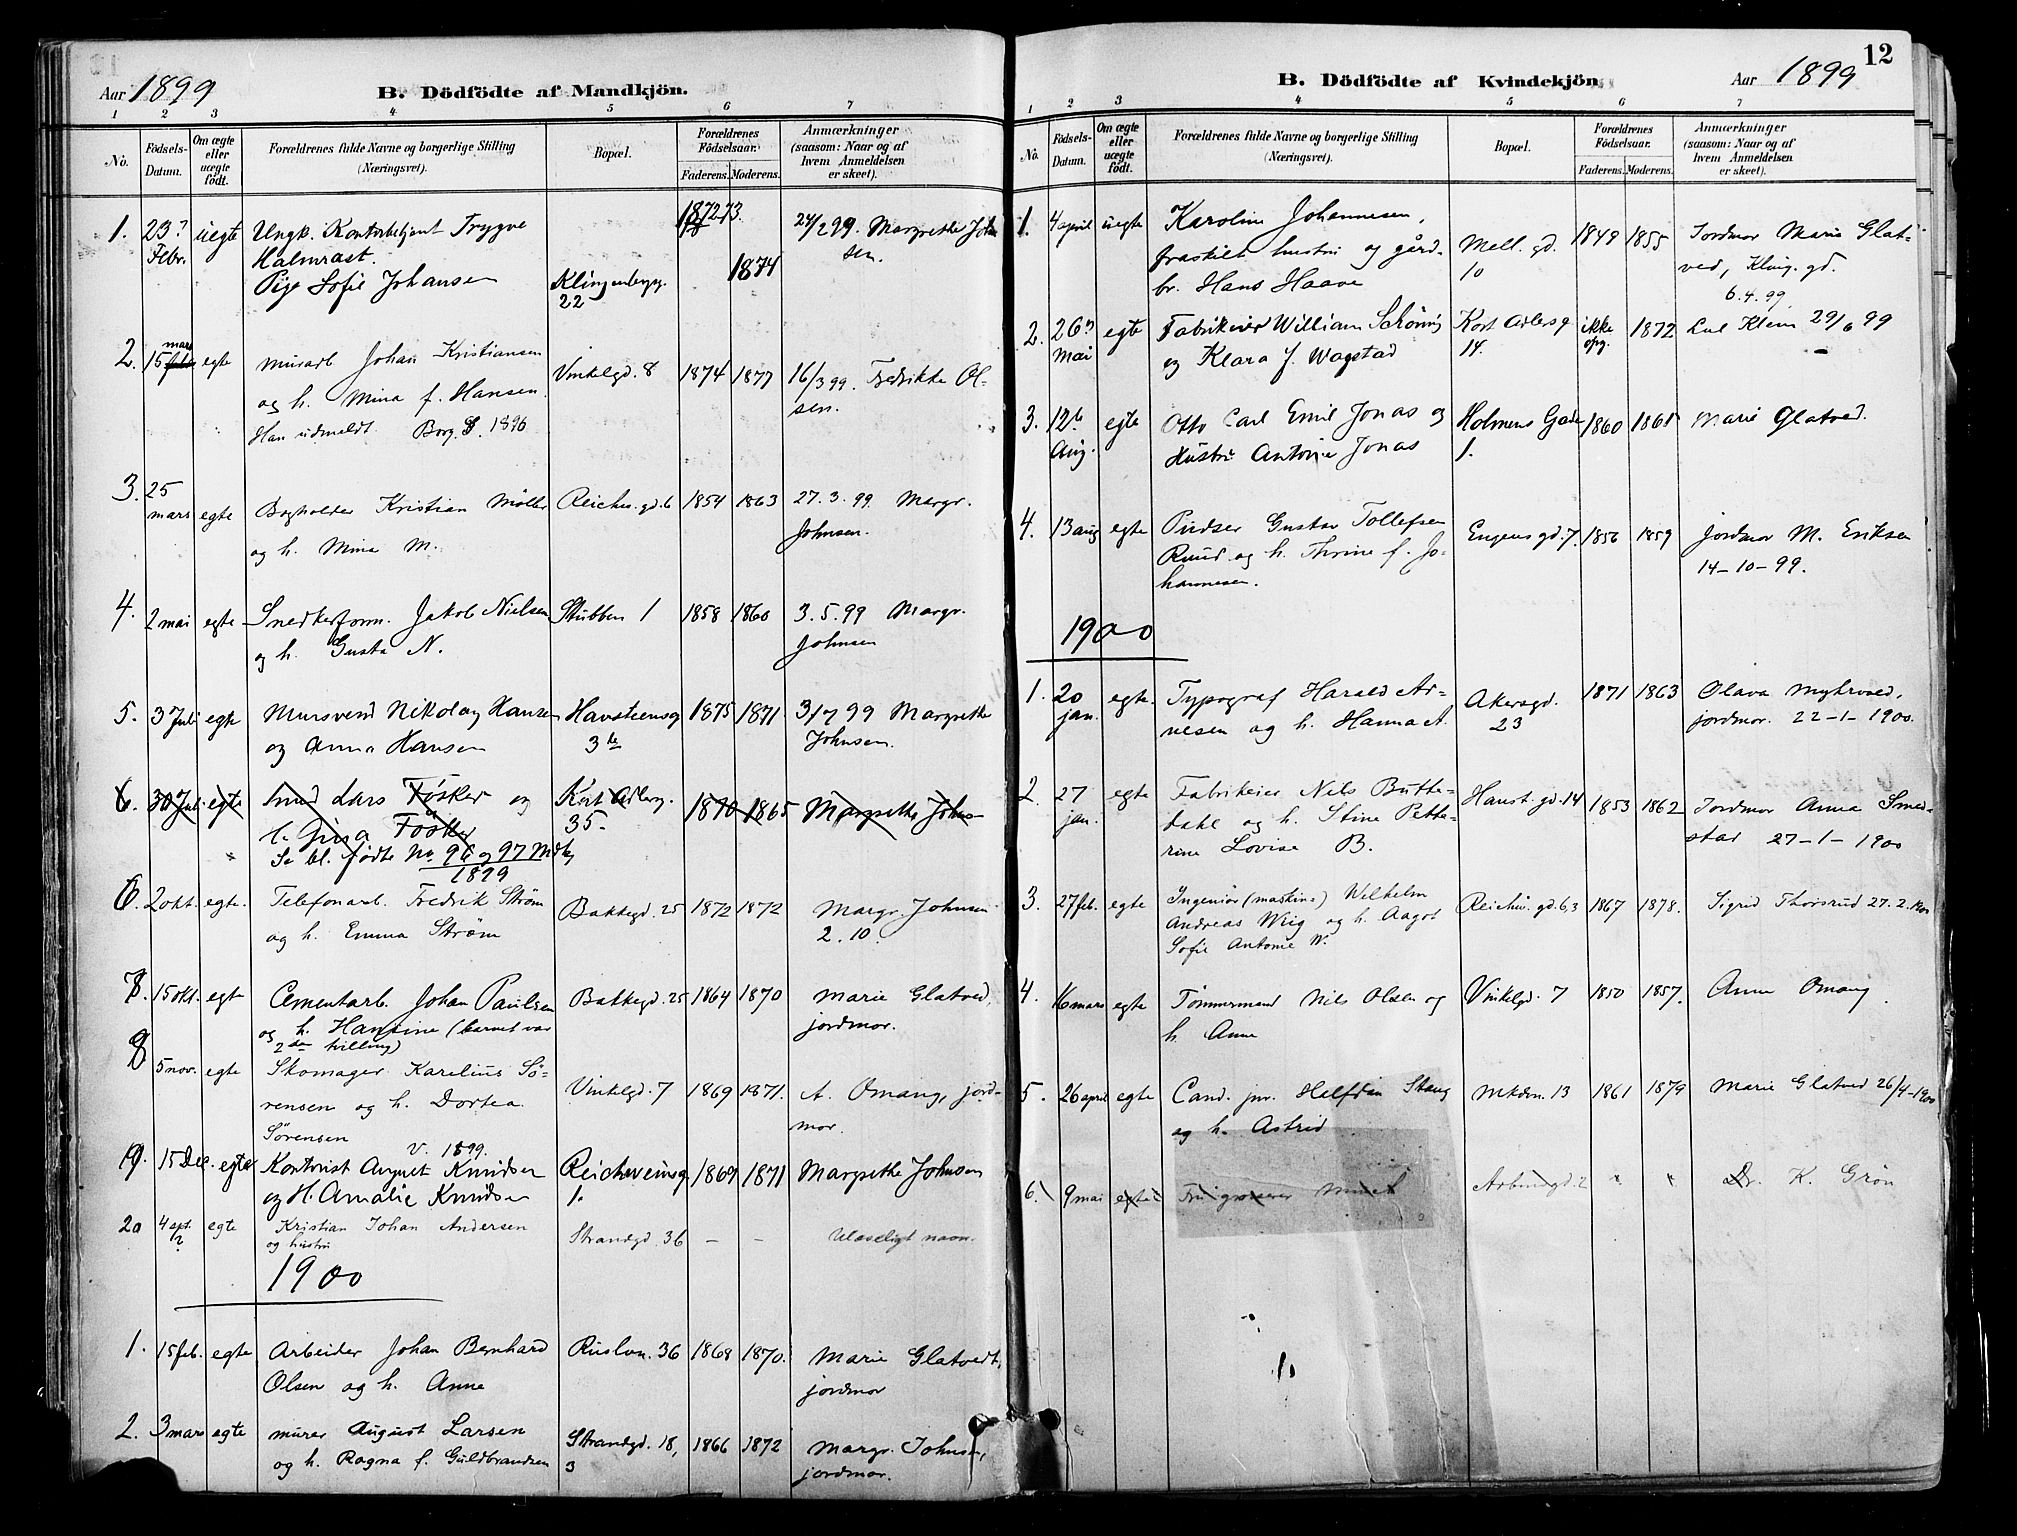 Aar 1899
B. Dödfödte af Mandkjön.
1 2 3 4 5 6 7
No.
Födsels-Datum.
Om ægte eller uægte født.
Forældrenes fulde Navne og borgerlige Stilling
(Næringsvei).
Bopæl.
Forældrenes Födselsaar.
Faderens. Moderens.
Anmærkninger
(saasom: Naar og af
hvem Anmeldelsen
er skeet).
1. 23? uegte Ungk. Kontorbetjent Trygve 1872-73. 24/2 99. Margrethe John
Febr. Halmrast. sen.
Pige Sofie Johansen Klingenbergg. 1874
22
mars
2. 15 egte murarb. Johan Kristiansen Vinkelgd. 8 1874 1877 16/3 99. Fredrikke Ol-
og h. Mina f. Hansen. sen.
Han udmeldt Borg. 1896
3. 25
mars egte Bogholder Kristian Møller Reichw. gd. 6 1854 1863 27. 3. 99. Margr.
og h. Mina M. Johnsen.
4. 2 mai egte Snedkerform. Jakob Nielsen Stubben 1 1858 1860 3. 5. 99 Margr.
og h. Gusta N. Johnsen
5. 3 Juli egte Mursvend Nikolay Hansen Havsteensg 1875 1871 3/7 99 Margrethe
og Anna Hansen 3 de Johnsen.
6. 30 Juli egte Smed Lars Fösker og Kort Adlersg. 1870 1865 Margrethe Johns
h. Gina Fösker 35.
Se bl. födte No 96 og 97 Mdk
1899
6. 2 okt. egte. Telefonarb. Fredrik Strøm Bakkegd. 25 1872 1872 Margr. Johnsen
og h. Emma Strøm 2. 10.
7. 15 okt. egt Cementarb. Johan Paulsen Bakkegd. 25 1864 1870 Marie Glatved,
og h. Hansine (barnet var jordmor.
2 den tvilling)
8 5 nov. egte Skomager Karelius Sö- Vinkelgd. 7 1869 1871. A. Omang, jord-
rensen og h. Dortea mor.
Sørensen v. 1899.
9. 15 Dec. egte Kontorist August Knudsen Reichweinsg 1869 1871 Margrethe Johnsen
og H. Amalie Knudsen 1.
20 4 spt. egte Kristian Johan Andersen Strandgd. 36 – – Ulæseligt navn.
? og hustru
1900
1. 15 feb. egte Arbeider Johan Bernhard Rusløv. 36 1868 1870. Marie Glatvedt,
Olsen og h. Anne jordmor
2. 3 mars egte murer August Larsen Strandgd. 18, 1866 1872 Margr. Johnsen,
og h. Ragna f. Guldbrandsen 3 jordmor.
12
B. Dödfödte af Kvindekjön.
Aar 1899
1 2 3 4 5 6 7
No.
Födsels-Datum.
Om ægte eller uægte födt.
Forældrenes fulde Navne og borgerlige Stilling
(Næringsvei).
Bopæl.
Forældrenes Födselsaar.
Faderens. Moderens.
Anmærkninger
(saasom: Naar og af
hvem Anmeldelsen
er skeet).
1. 4 april uegte Karoline Johannesen, Mell. gd. 1849 1855 Jordmor Marie Glat-
fraskilt hustru og gård- 10 ved, Kling. gd.
br. Hans Haave 6. 4. 99
2. 26 egte Fabrikeier William Schønig Kort Adlersg ikke 1872 Lul Klem 29/6 99
Mai og Klara f. Wagstad 14. opg.
3. 12te egte Otto Carl Emil Jonas og Holmens Gade 1860 1861 Marie Glatved.
Aug. Hustru Antonie Jonas 1.
4. 13 aug egte Pudser Gustav Tollefsen Engens gd. 7. 1856 1859 Jordmor M. Eriksen
Ruud og h. Thrine f. Jo- 14-10-99.
hannesen.
1900
1. 20 egte. Typograf Harald Ar- Akersgd. 1871 1863 Olava Myhrvold,
jan. nesen og h. Hanna A. 23 jordmor. 22-1-1900.
2. 27 egte Fabrikeier Nils Butte- Havst. gd. 14 1853 1862 Jordmor Anna Smed-
jan. dahl og h. Stine Pette- stad 27-1-1900
rine Lovise B.
3. 27 feb. egte Ingeniør (maskin=) Wilhelm Reichw. gd. 6,3 1867 1878. Sigrid Thorsrud 27. 2. 1900
Andreas Wiig og h. Aagot
Sofie Antonie W.
4. 16 mars egte Tømmermand Nils Olsen og Vinkelgd. 7 1850 1857. Anne Omang
h. Anne
5. 26 april egte Cand. jur. Halfdan Stang Mkdvn. 13 1861 1879 Marie Glatved 26/4-1900
og h. Astrid
6. 9 mai egte Arbiensgd. 2 " " Dr. K. Grön